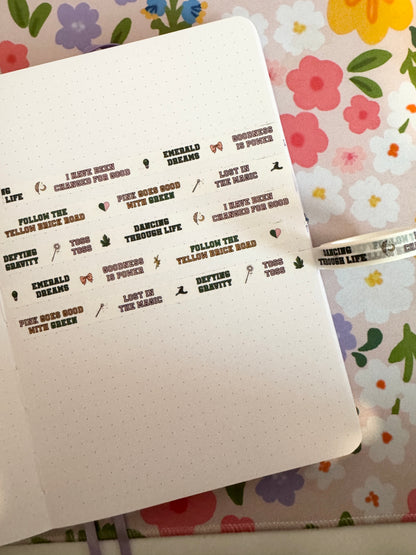 NG
LIFE
I HAVE BEEN
CHANGED FOR GOOD
EMERALD
DREAMS
GOODNESS
IS POWER
FOLLOW THE
YELLOW BRICK ROAD
PINK GOES GOOD
WITH GREEN
LOST IN
THE MAGIC
DEFYING
GRAVITY
TOSS
TOSS
DANCING
THROUGH LIFE
I HAVE BEEN
CHANGED FOR GOOD
EMERALD
DREAMS
GOODNESS
IS POWER
FOLLOW THE
YELLOW BRICK ROAD
PINK GOES GOOD
WITH GREEN
LOST IN
THE MAGIC
DEFYING
GRAVITY
TOSS
TOSS
DANCING
THROUGH LIFE